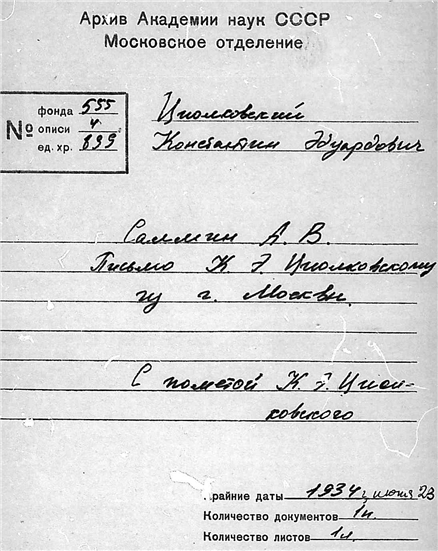 Архив Академии наук СССР
Московское отделение
№
фонда 555
описи 4
ед. хр. 899
Циолковский
Константин Эдуардович
Саммин А. В.
Письмо К Э Циолковскому
из г. Москвы.
С пометой К. Э. Циол-
ковского
райние даты 1934, июня 23
Количество документов 1п.
Количество листов 1л.